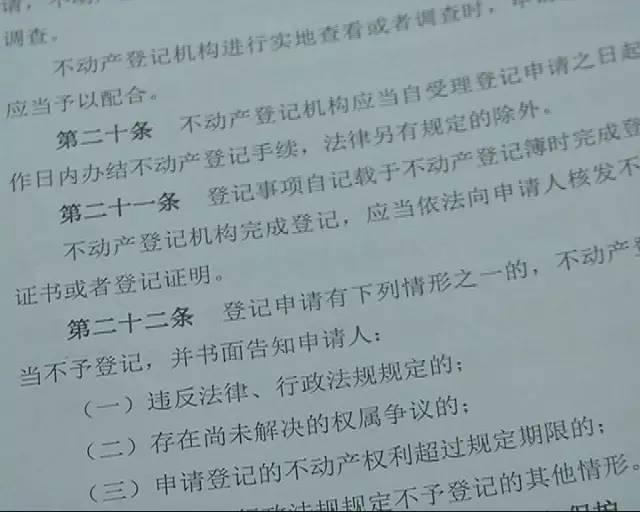 调查。
不动产登记机构进行实地查看或者调查时，
应当予以配合。
第二十条 不动产登记机构应当自受理登记申请之日起
作日内办结不动产登记手续，法律另有规定的除外。
第二十一条 登记事项自记载于不动产登记簿时完成登
不动产登记机构完成登记，应当依法向申请人核发不
证书或者登记证明。
第二十二条 登记申请有下列情形之一的，不动产登
当不予登记，并书面告知申请人：
（一）违反法律、行政法规规定的；
（二）存在尚未解决的权属争议的；
（三）申请登记的不动产权利超过规定期限的；
行政法规规定不予登记的其他情形。